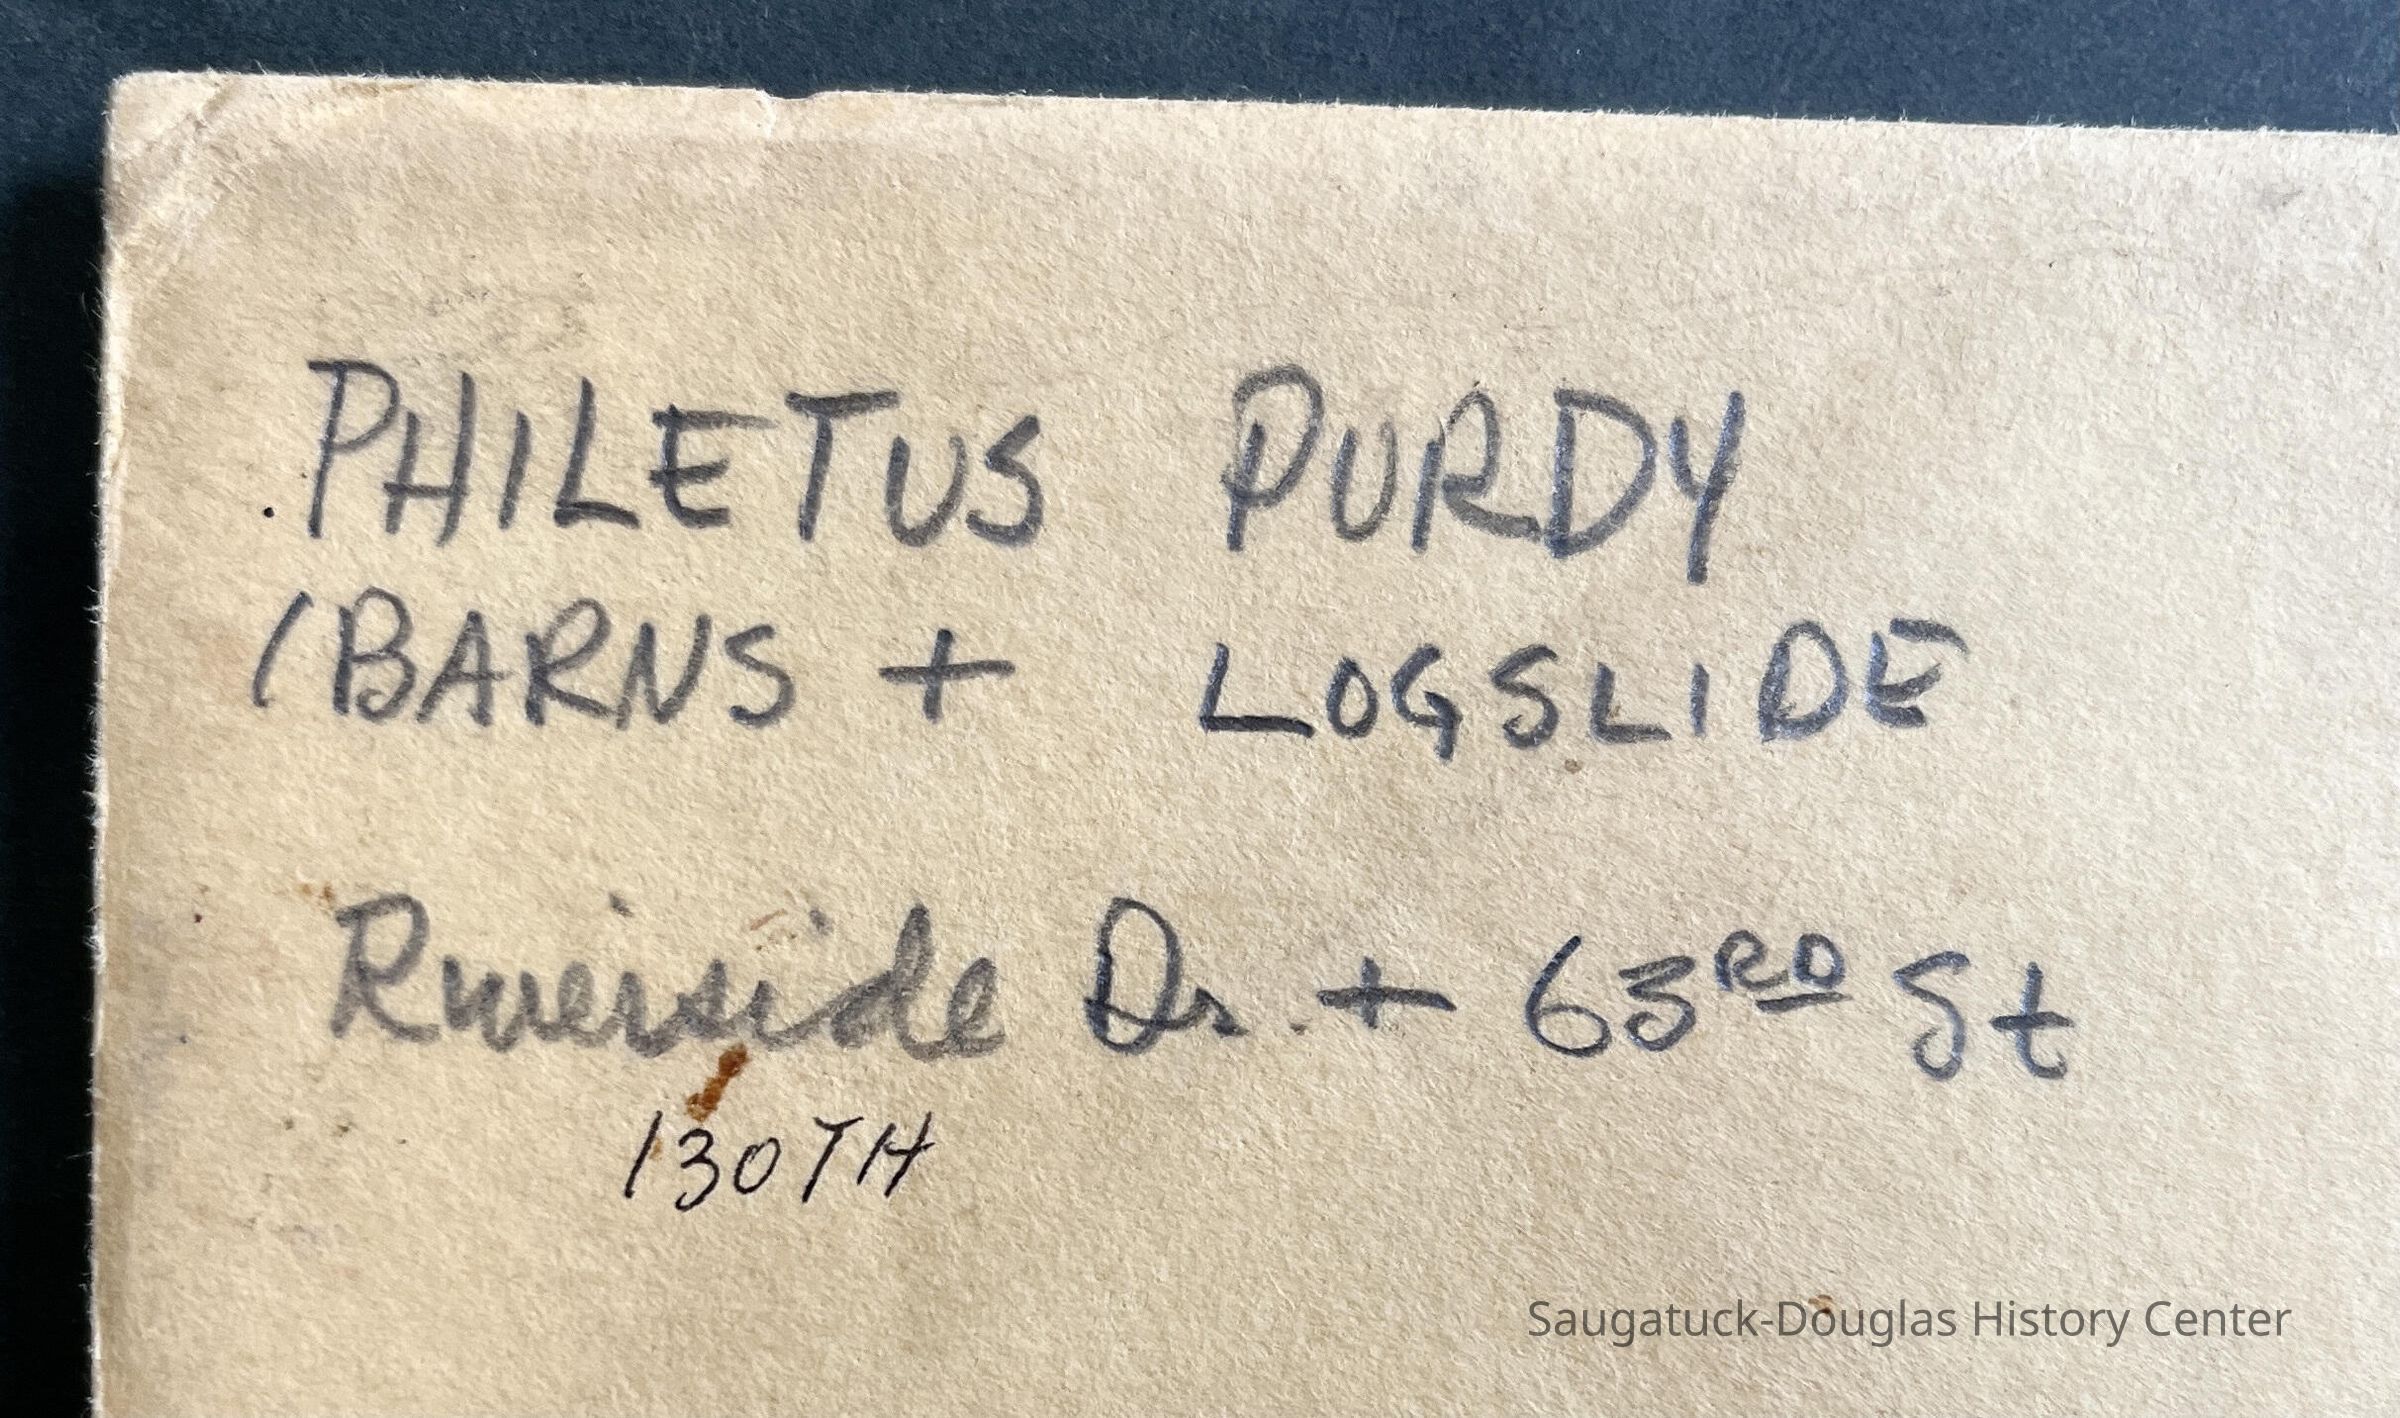 PHILETUS PURDY
(BARNS + LOGSLIDE
Riverside Dr. + 63RD St
130TH
Saugatuck-Douglas History Center